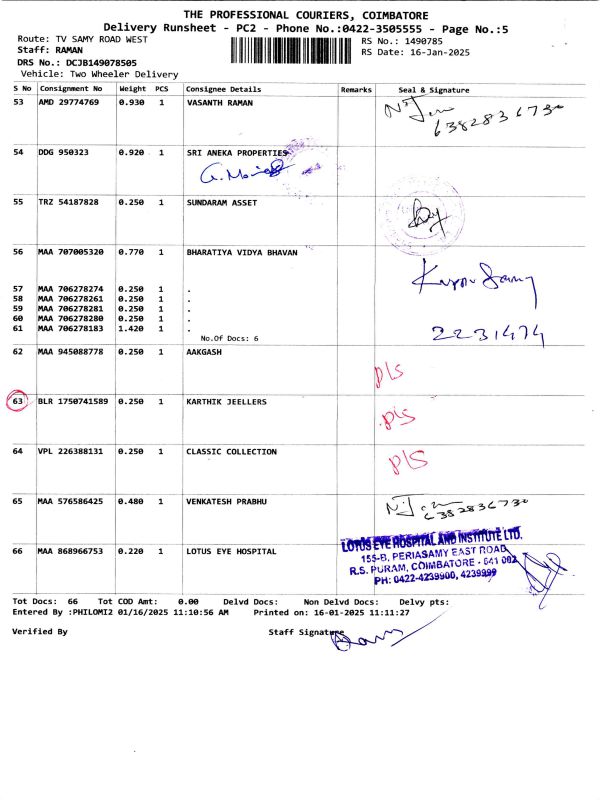 THE PROFESSIONAL COURIERS, COIMBATORE
Delivery Runsheet - PC2 - Phone No.:0422-3505555 - Page No.:5
Route: TV SAMY ROAD WEST
RS No.: 1490785
Staff: RAMAN
RS Date: 16-Jan-2025
DRS No.: DCJB149078505
Vehicle: Two Wheeler Delivery
S No Consignment No Weight PCS Consignee Details Remarks Seal & Signature
53 AMD 29774769 0.930 1 VASANTH RAMAN
6382836730
54 DDG 950323 0.920 1 SRI ANEKA PROPERTIES
55 TRZ 54187828 0.250 1 SUNDARAM ASSET
56 MAA 707005320 0.770 1 BHARATIYA VIDYA BHAVAN
57 MAA 706278274 0.250 1 .
58 MAA 706278261 0.250 1 .
59 MAA 706278281 0.250 1 .
60 MAA 706278280 0.250 1 .
61 MAA 706278183 1.420 1 .
2231474
No.Of Docs: 6
62 MAA 945088778 0.250 1 AAKGASH
pls
63 BLR 1750741589 0.250 1 KARTHIK JEELLERS
pls
64 VPL 226388131 0.250 1 CLASSIC COLLECTION
pls
65 MAA 576586425 0.480 1 VENKATESH PRABHU
6382836730
66 MAA 868966753 0.220 1 LOTUS EYE HOSPITAL
LOTUS EYE HOSPITAL AND INSTITUTE LTD.
155-B, PERIASAMY EAST ROAD
R.S. PURAM, COIMBATORE - 641 002
PH: 0422-4239900, 4239999
Tot Docs: 66 Tot COD Amt: 0.00 Delvd Docs: Non Delvd Docs: Delvy pts:
Entered By :PHILOMI2 01/16/2025 11:10:56 AM Printed on: 16-01-2025 11:11:27
Verified By
Staff Signature